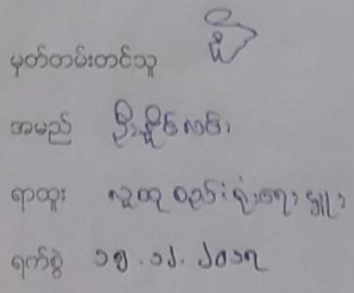 မှတ်တမ်းတင်သူ
အမည် ဦးနိုင်လင်း
ရာထူး လူထု စည်းရုံးရေးမှူး
ရက်စွဲ ၁၅.၁၂.၂၀၁၇